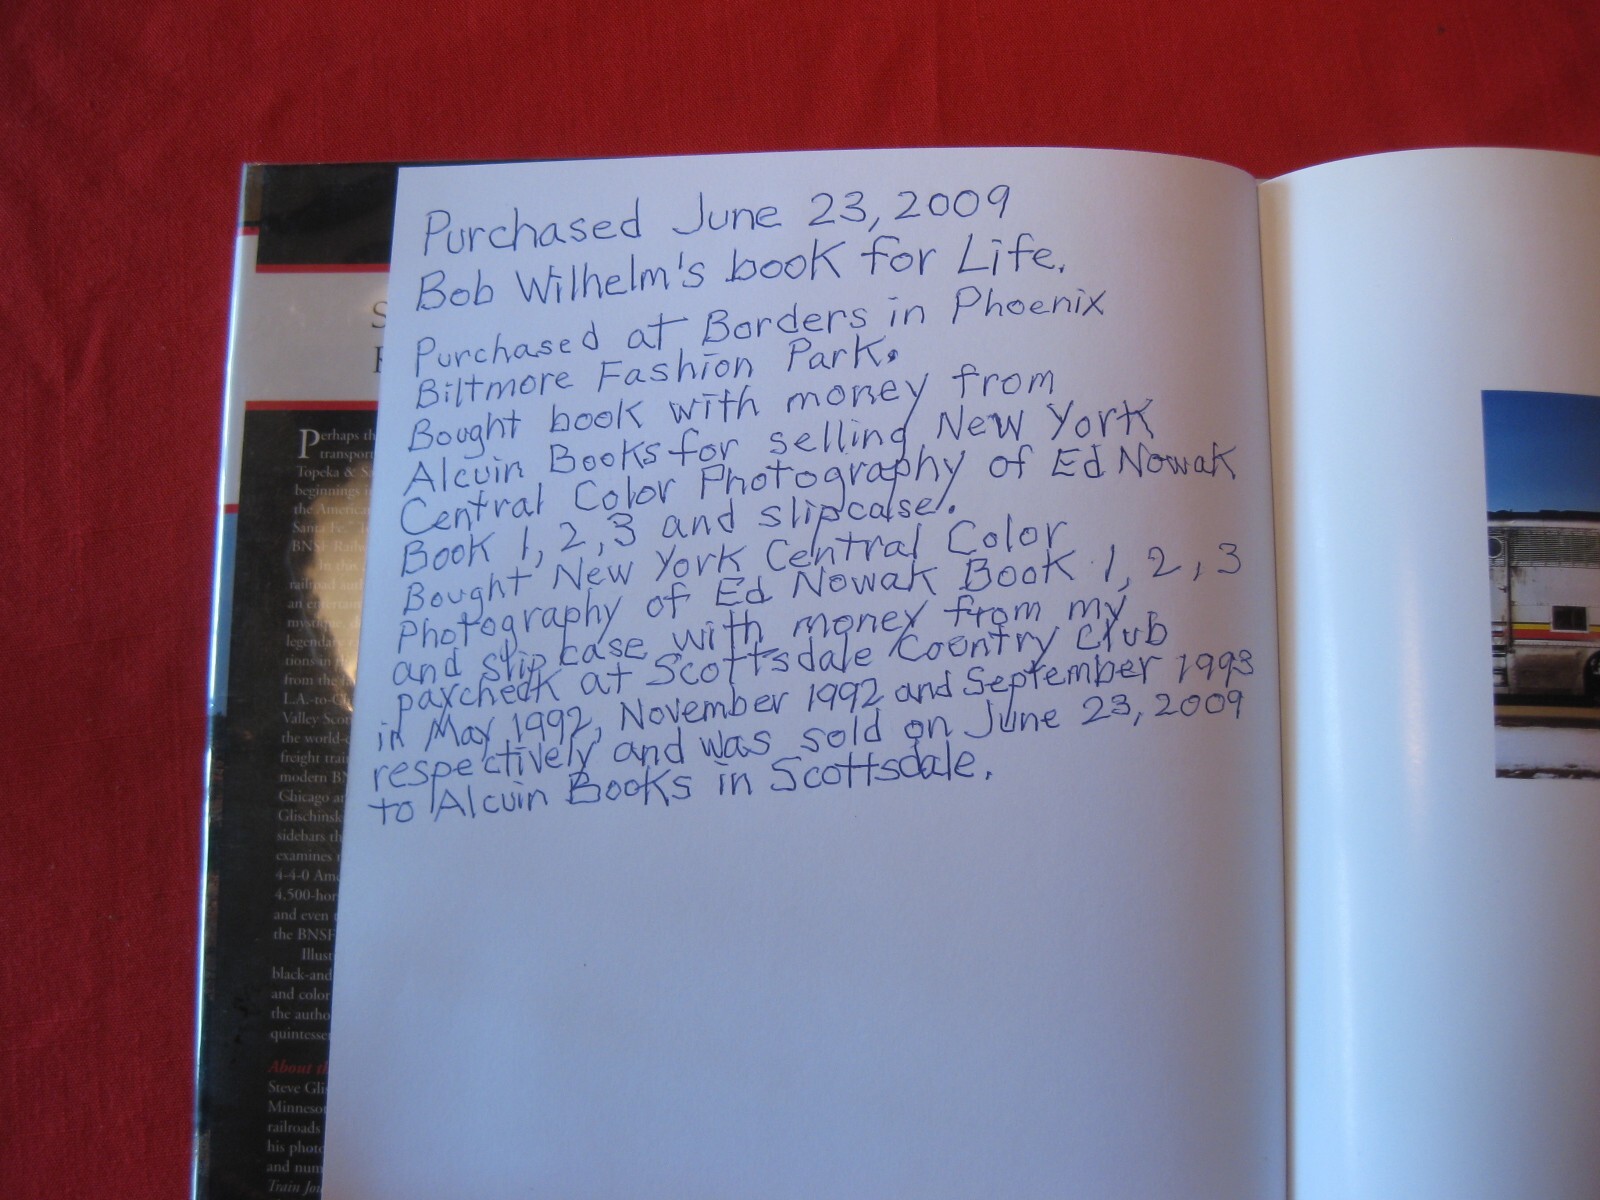 Purchased June 23, 2009
Bob Wilhelm's book for Life.
Purchased at Borders in Phoenix
Biltmore Fashion Park.
Bought book with money from
Alcuin Books for selling New York
Central Color Photography of Ed Nowak
Book 1, 2, 3 and slipcase.
Bought New York Central Color
Photography of Ed Nowak Book 1, 2, 3
and slip case with money from my
paycheck at Scottsdale Country Club
in May 1992, November 1992 and September 1993
respectively and was sold on June 23, 2009
to Alcuin Books in Scottsdale.
Perhaps th
transport
Topeka & Sa
beginnings i
the America
Santa Fe." T
BNSF Railw
In this
railroad auth
an entertain
mystique, d
legendary
tions in th
from the
L.A.-to-Ch
Valley Scou
the world-c
freight trai
modern BN
Chicago an
Glischinsk
sidebars th
examines
4-4-0 Ame
4,500-hor
and even
the BNSF
Illust
black-and
and color
the autho
quintesse
About th
Steve Gli
Minneso
railroads
his photo
and num
Train Jou